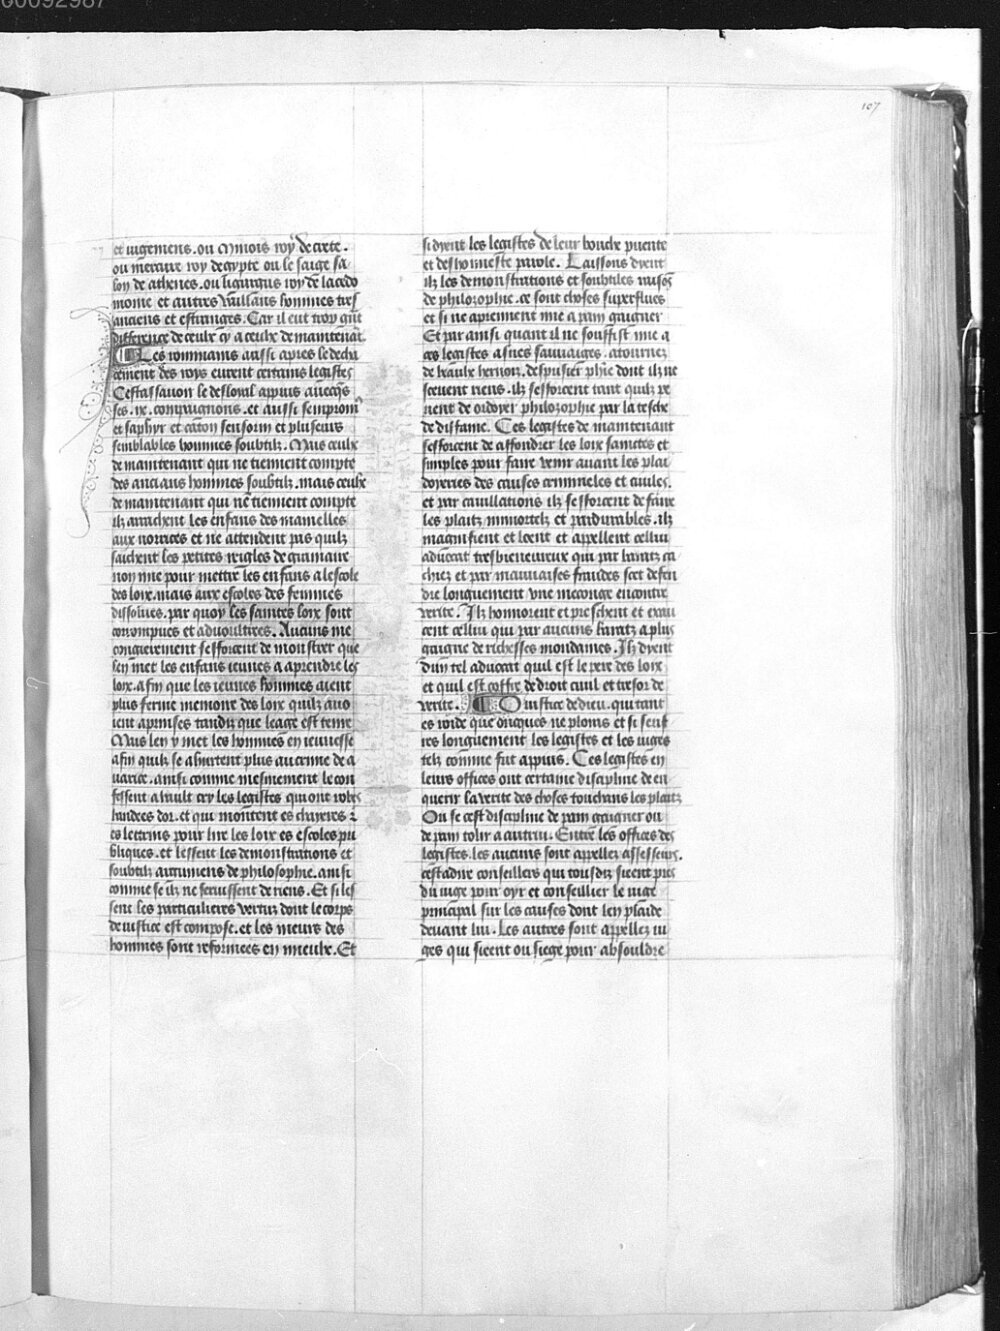 00092987
107
et iugemens. ou minois roy de crete.
ou mercure roy degypte ou le saige sa
lon de athenes. ou ligurgus roy de lacedo
mone et autres vaillans hommes tres
anciens et estranges. Car il eut trop grãt
difference de ceulx cy a ceulx de maintenãt.
Les rommains aussi apres le dechā
cement des roys eurent certains legistes
Cestassauoir le desloyal appius auecq̃s
ses .ix. compaignons. et aussi sempromꝰ
et saphyr et caton sensorin et pluseurs
semblables hommes soubtilz. Mais ceulx
de maintenant qui ne tiennent compte
des anciens hommes soubtilz. mais ceulx
de maintenant qui ne tiennent compte
ilz arrachent les enfans des mamelles
aux norrices et ne attendent pas quilz
saichent les petites reigles de gramaire
non mie pour mettre les enfans a lescole
des loix. mais aux escoles des femmes
dissolues. par quoy les saintes loix sont
corrompues et aduoultrees. Aucuns me
congierement sefforcent de monstrer que
len met les enfans ieunes a aprendre les
loix. afin que les ieunes hommes aient
plus ferme memoire des loix quilz auo
ient aprinses tandiz que leage est tenre
Mais len y met les hommes en ieunesse
afin quilz se ahurtent plus au crime de a
uarice. ainsi comme mesmement le con
fessent a hault cry les legistes qui ont robes
bandees dor. et qui montent es chayeres ⁊
es lettrins pour lire les loix es escoles pu
bliques. et lessent les demonstrations et
soubtilz argumens de philosophie. ainsi
comme se ilz ne seruissent de riens. Et si les
sent les particulieres vertuz dont le corps
de iustice est compose. et les meurs des
hommes sont reformees en mieulx. Et
si dyent les legistes de leur bouche puente
et deshonneste parole. Laissons dyent
ilz les demonstrations et soubtiles raisõs
de philozophie. ce sont choses superflues
et si ne apriennent mie a pain gaigner
Et par ainsi quant il ne souffist mie a
ces legistes asnes sauuaiges. atournez
de haulx hernoiz. despriser phie dont ilz ne
sceuent riens. ilz sefforcent tant quilz pe
uent de ordoyer philozophie par la tesche
de diffame. Ces legistes de maintenant
sefforcent de affondrer les loix sainctes et
simples pour faire venir auant les plai
doyeries des causes criminelles et ciuiles.
et par cauillations ilz se sfforcent de faire
les plaitz immortelz et pardurables. ilz
magnifient et loent et appellent cellui
aduocat tresbieneureux qui par baratz ca
chiez et par mauuaises fraudes scet defen
dre longuement vne meconge encontre
verite. Ilz honnorent et preschent et exau
cent cellui qui par aucuns baratz a plus
gaigne de richesses mondaines. Ilz dyent
dun tel aduocat quil est le pere des loix
et quil est coffre de droit ciuil et tresor de
verite. O iustice de dieu. qui tant
es roide que oncques ne ploias et si seuf
res longuement les legistes et les iuges
telz comme fut appius. Ces legistes en
leurs offices ont certaine disapline de en
querir la verite des choses touchans les plaitz
Ou se cest disapline de pain gaigner ou
de pain tolir a autrui. Entre les offices des
legistes. les aucuns sont appellez assesseurs.
cestadire conseilliers qui tousdiz sieent pres
du iuge pour oyr et conseillier le iuge
principal sur les causes dont len plaide
deuant lui. Les autres sont appellez iu
ges qui sieent ou siege pour absouldre